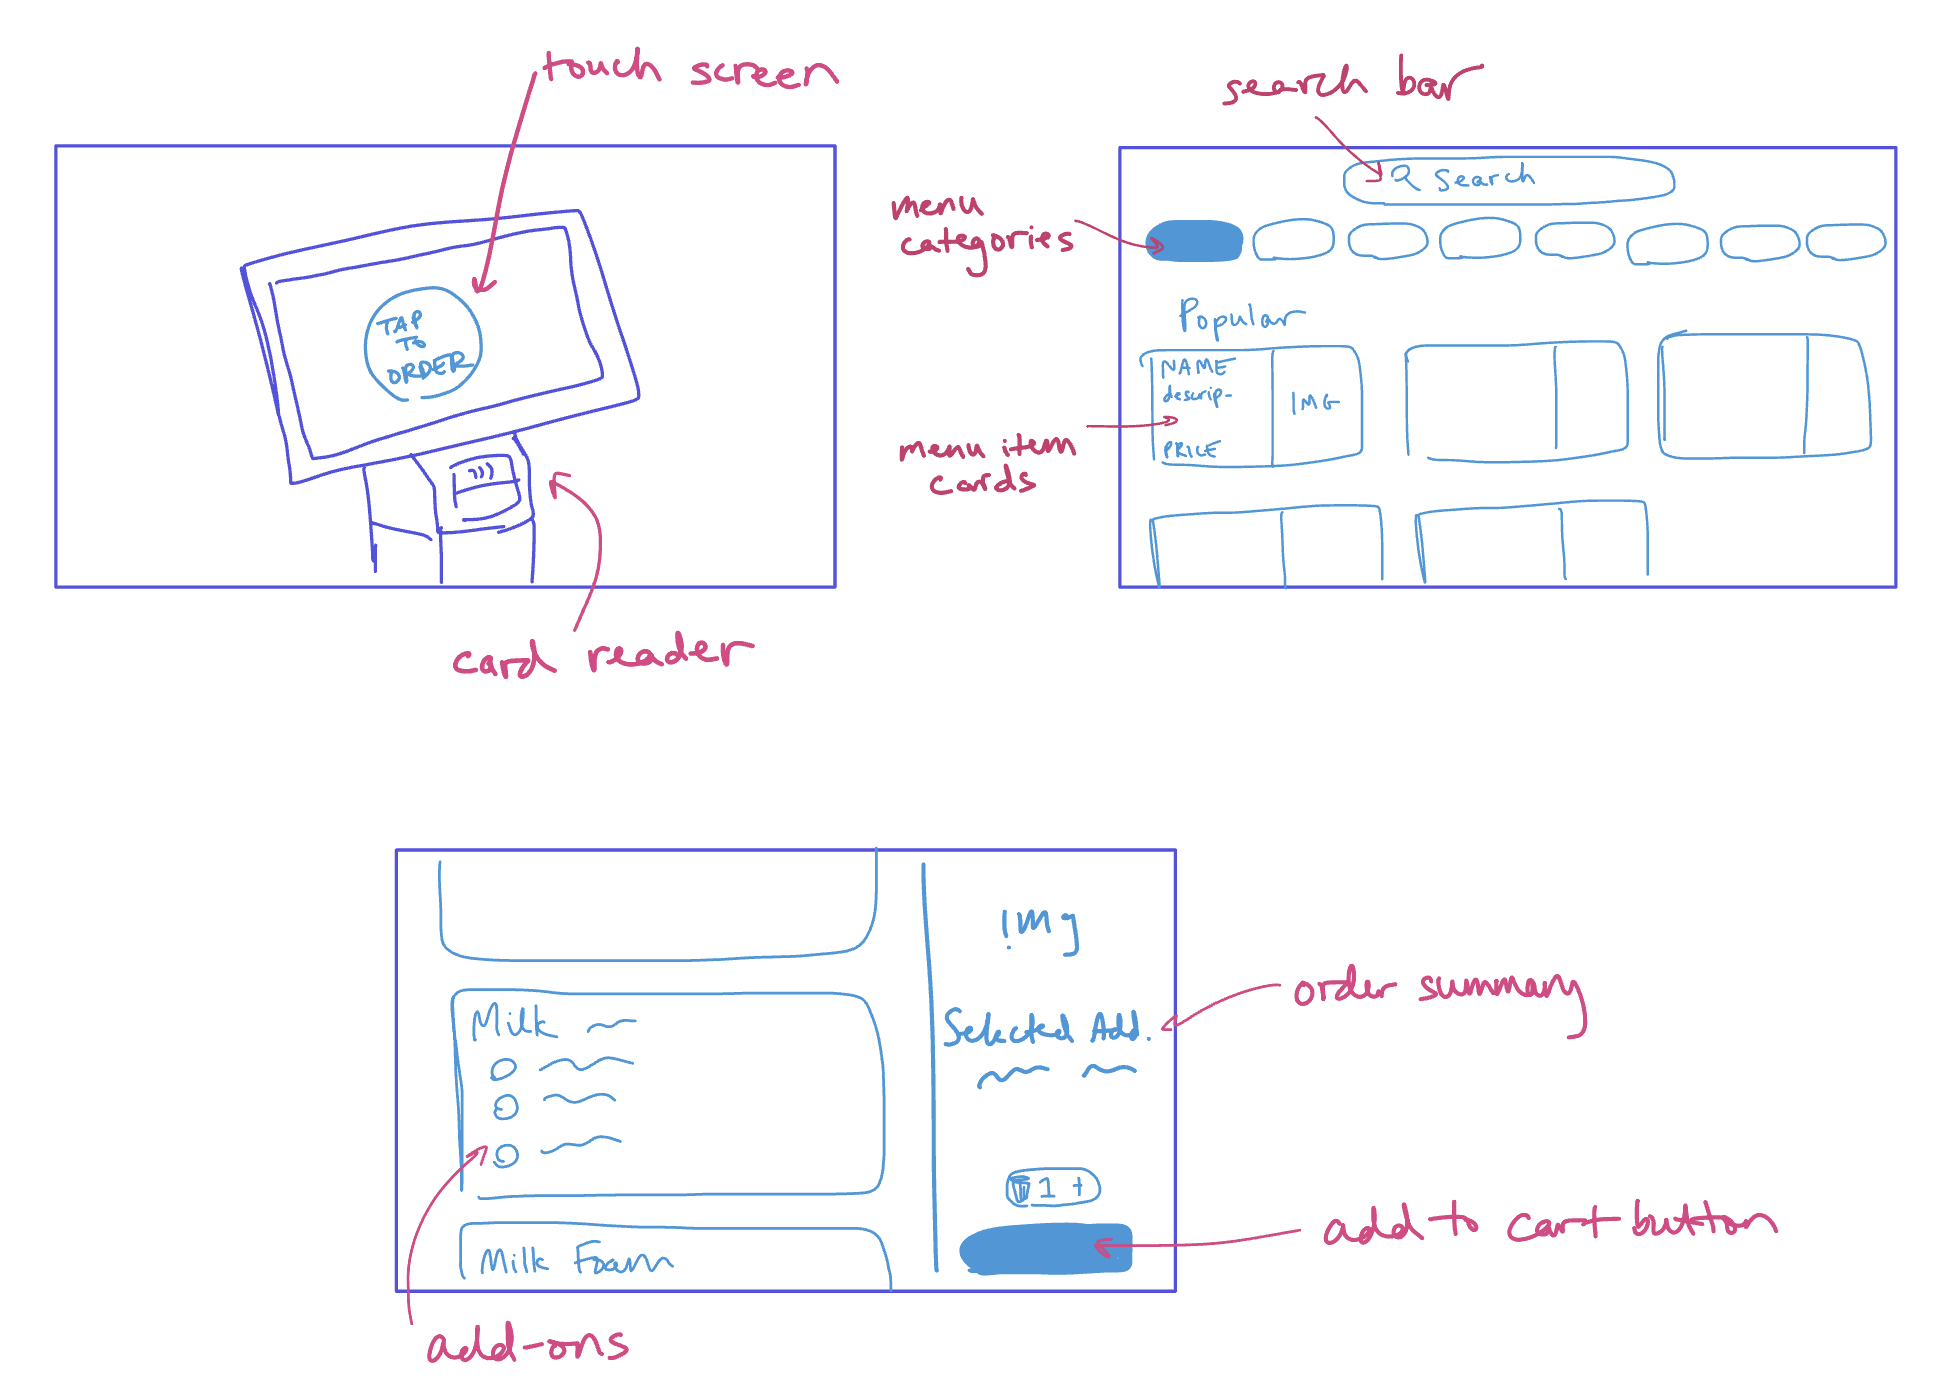 touch screen
TAP
TO
ORDER
card reader
search bar
Search
menu
categories
Popular
NAME
descrip-
PRICE
IMG
menu item
cards
img
Selected Add.
order summary
Milk
1 +
add to cart button
Milk Foam
add-ons